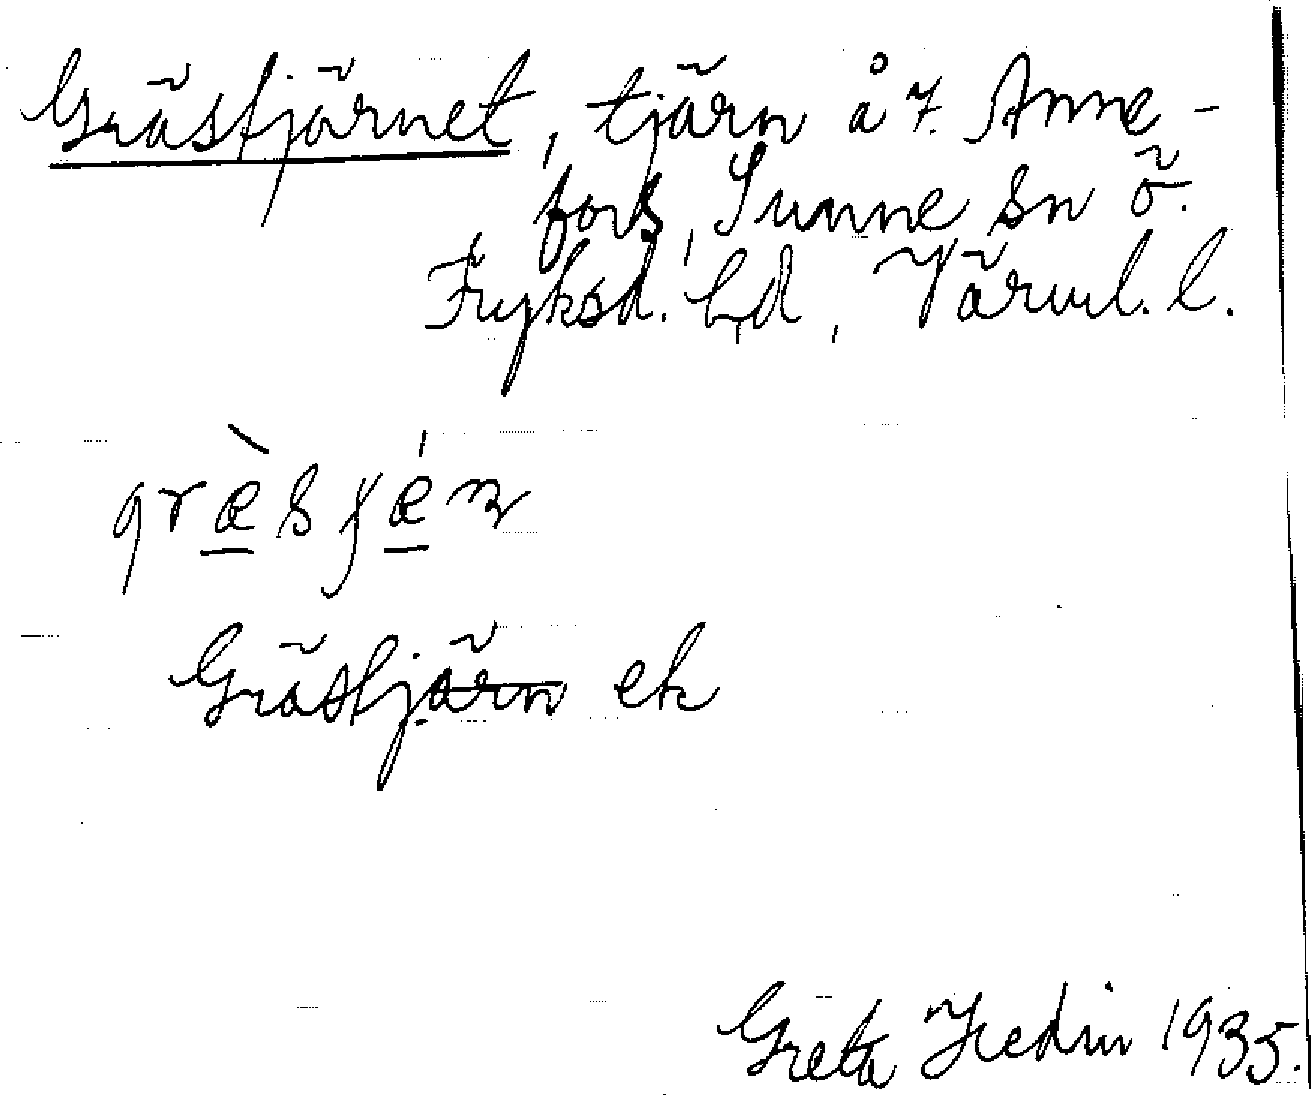 Grästjärnet, tjärn å 7. Anne-
fors, Sunne sn Ö.
Fryksd. hd, Värml. l.
græ̀sʃǽn
Grästjärn ek
Greta Hedin 1935.